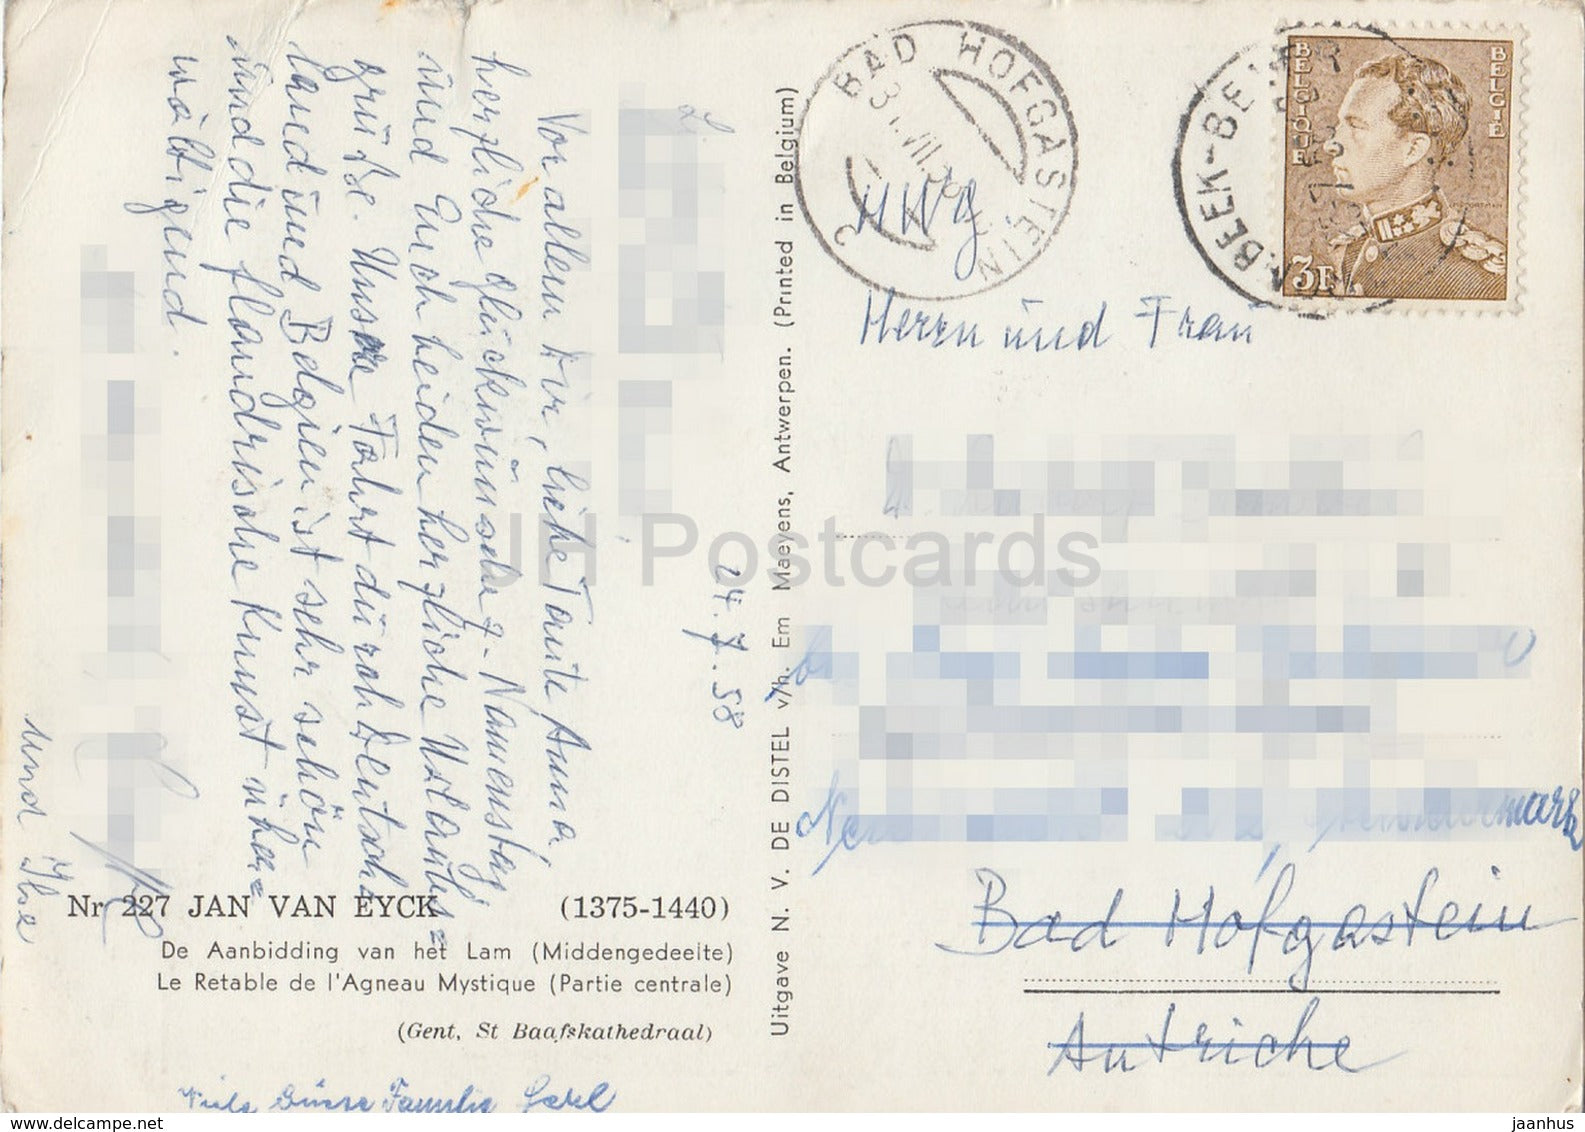 24.7.58
Vor allem Dir, liebe Tante Anna,
herzliche Glückwünsche z. Namenstag
und Euch beiden herzliche Urlaubs=
grüße. Unsere Fahrt durch Deutsch=
land und Belgien ist sehr schön
und die flandrische Kunst über=
wältigend.
und Ihre
Nr 227 JAN VAN EYCK (1375-1440)
De Aanbidding van het Lam (Middengedeelte)
Le Retable de l'Agneau Mystique (Partie centrale)
(Gent, St Baafskathedraal)
Viele Grüsse Familie
Uitgave N. V. DE DISTEL v/h. Em Maeyens, Antwerpen. (Printed in Belgium)
BAD HOFGASTEIN
BELGIQUE
BELGIË
3F
Herrn und Frau
Bad Hofgastein
Autriche
JH Postcards
www.delcampe.net
jaanhus